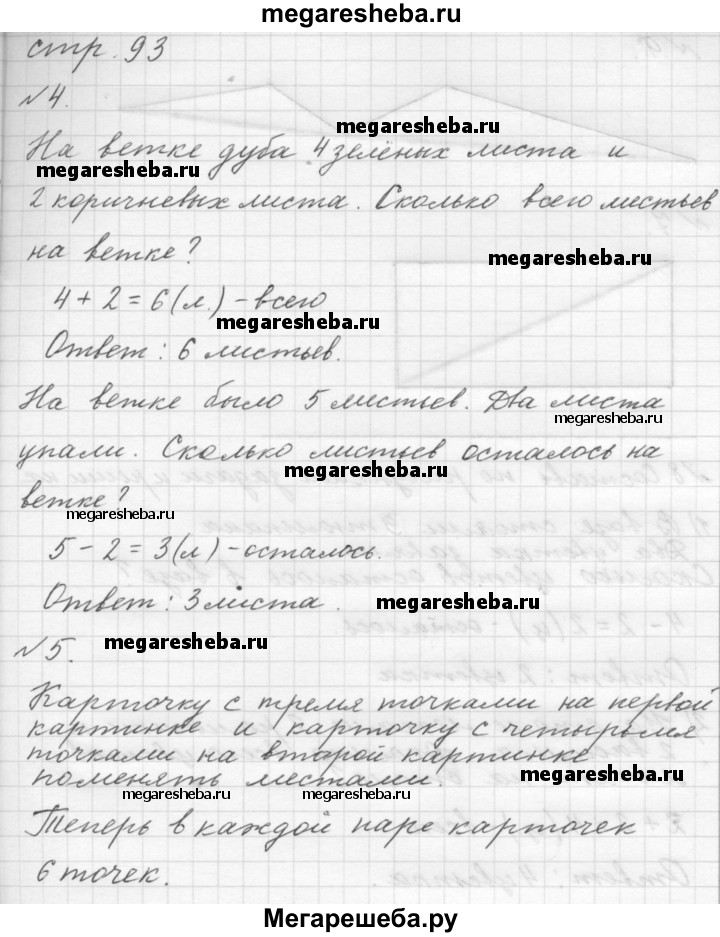 megaresheba.ru
стр. 93
№4.
megaresheba.ru
На ветке дуба 4 зелёных листа и
megaresheba.ru
2 коричневых листа. Сколько всего листьев
на ветке?
megaresheba.ru
4 + 2 = 6 (л.) - всего
megaresheba.ru
Ответ: 6 листьев.
На ветке было 5 листьев. Два листа
megaresheba.ru
упали. Сколько листьев осталось на
megaresheba.ru
ветке?
megaresheba.ru
5 - 2 = 3 (л) - осталось.
Ответ: 3 листа.
megaresheba.ru
№5.
megaresheba.ru
Карточку с тремя точками на первой
картинке и карточку с четырьмя
точками на второй картинке
поменять местами.
megaresheba.ru
megaresheba.ru
megaresheba.ru
Теперь в каждой паре карточек
6 точек.
Мегарешеба.ру